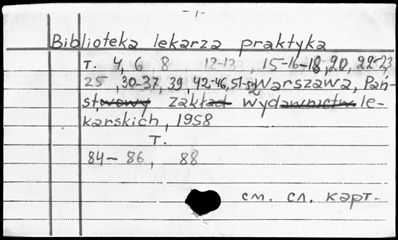 - 1 -
Biblioteka lekarza praktyka
т. 4, 6 8 12-13 15-16-18, 20, 22-23
25, 30-37, 39, 42-46, 51-52 Warszawa, Pań-
stwowy zakład wydawnictw le-
karskich, 1958
Т.
84-86, 88
см. сл. карт.